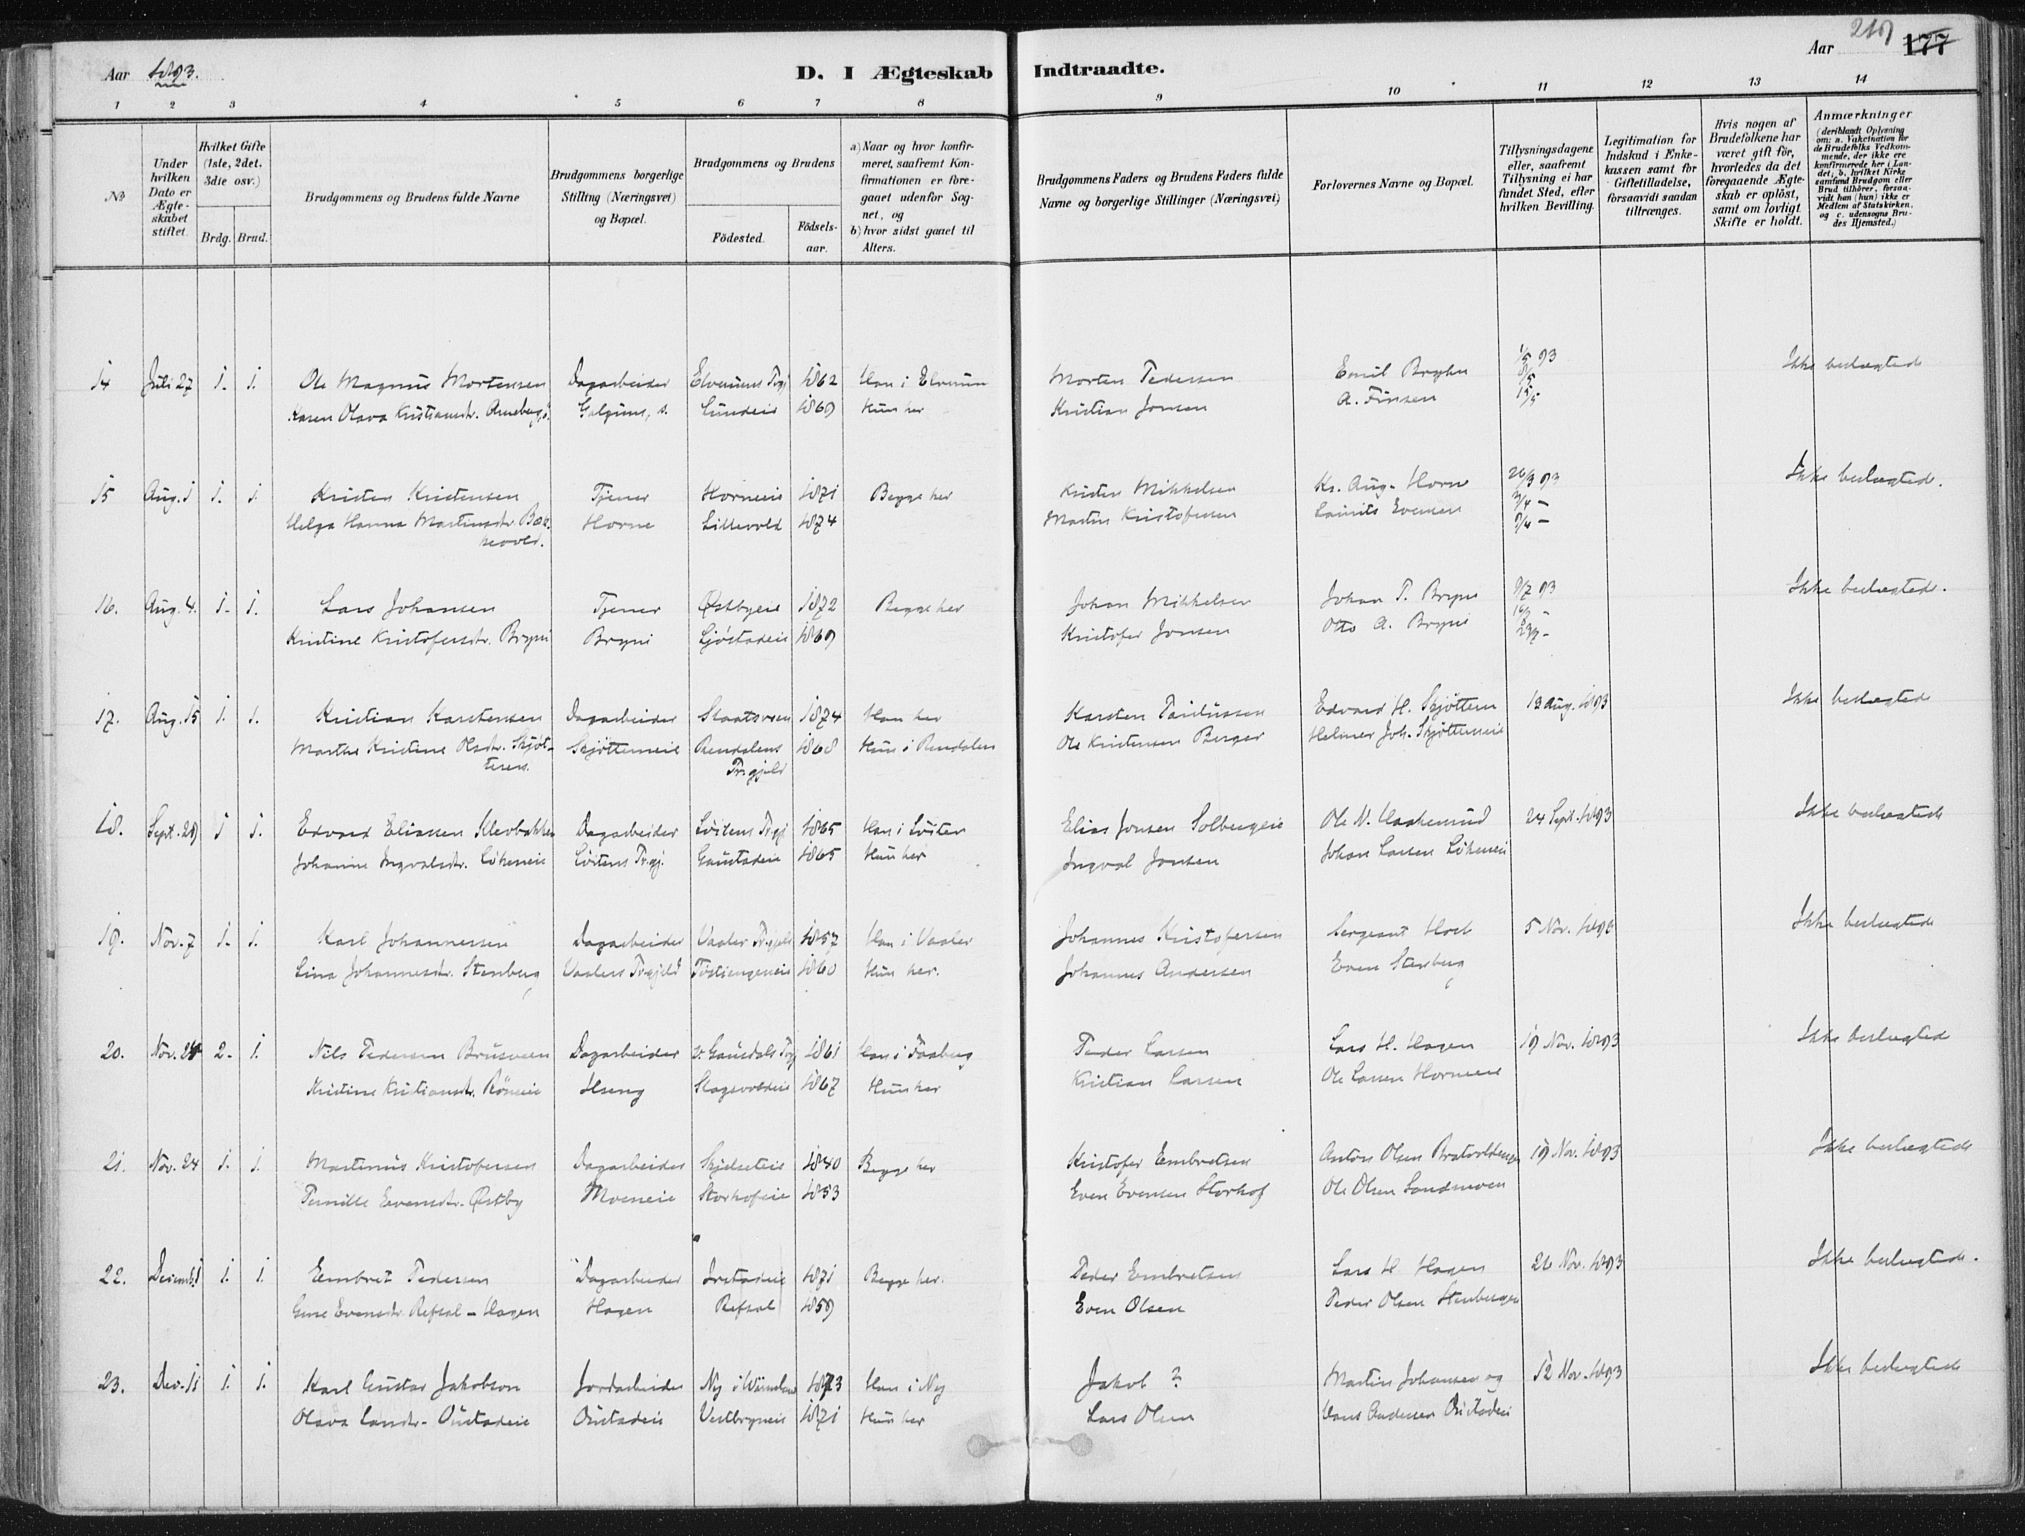 Aar 1893.
D. I Ægteskab Indtraadte.
Aar 177
1 2 3 4 5 6 7 8 9 10 11 12 13 14
No
Under hvilken Dato er Ægteskabet stiftet.
Hvilket Gifte (1ste, 2det, 3die osv.)
Brdg. Brud.
Brudgommens og Brudens fulde Navne
Brudgommens borgerlige Stilling (Næringsvei) og Bopæl.
Brudgommens og Brudens
Födested.
Födselsaar.
a) Naar og hvor konfirmeret, saafremt Konfirmationen er foregaaet udenfor Sognet, og
b) hvor sidst gaaet til Alters.
Brudgommens Faders og Brudens Faders fulde Navne og borgerlige Stillinger (Næringsvei)
Forlovernes Navne og Bopæl.
Tillysningsdagene eller, saafremt Tillysning ei har fundet Sted, efter hvilken Bevilling.
Legitimation for Indskud i Enkekassen samt for Giftetilladelse, forsaavidt saadan tiltrænges.
Hvis nogen af Brudefolkene har været gift för, hvorledes da det foregaaende Ægteskab er oplöst, samt om lovligt Skifte er holdt.
Anmærkninger (deriblandt Oplysning om: a. Vakcination for de Brudefolks Vedkommende, der ikke ere konfirmerede her i Landet; b. hvilket Kirkesamfund Brudgom eller Brud tilhörer, forsaavidt han (hun) ikke er Medlem af Statskirken, og c. udensogns Brudes Hjemsted.)
14 Juli 27 1. 1. Ole Magnus Mortensen Dagarbeider Elverums Prgj 1862 Han i Elverum Morten Pedersen Emil Bryhn 1/5 93 Ikke beslægtede
Karen Olava Kristiansdr. Lundeie 1869 Hun her Kristian Jonsen A. Finsen
15 Aug. 1 1. 1. Kristen Kristensen Tjener Horneeie 1871 Begge her Kristen Mikkelsen Kr. Aug. Horne 26/3 93 Ikke beslægtede.
Helga Hanna Martinsdr. Horne Lillevold 1874 Martin Kristofersen Evensen 2/4 –
9/4 –
16. Aug. 4. 1. 1. Lars Johansen Tjener Østbyeie 1872 Begge her Johan Mikkelsen Johan P. Bryni 9/7 93 Ikke beslægtede.
Kristine Kristofersdr. Bryni Bryni Sjøstadeie 1869 Kristofer Jonsen Otto A. Bryni 16/7 –
23/7 –
17. Aug. 15 1. 1. Kristian Karstensen Dagarbeider 1874 Han her Karsten Edvard H. Skjøtten 13 Aug. 1893 Ikke beslægtede
Marthe Kristine Olsdr. Skjøtteneie Rendalens Prgjeld 1868 Hun i Rendalen Ole Kristensen Berger Helmer Joh. Skjøtteneie
18. Sept. 29 1 1. Edvard Eliassen Klevbakken Dagarbeider Løitens Prgj 1865 Han i Løiten Elias Jonsen Solbergeie Ole N. Haakenrud 24 Sept. 1893 Ikke beslægtede
Johanne Ingvalsdr. Løkeneie Løitens Prgj. Gaustadeie 1865 Hun her Ingval Jonsen Johan Larsen Løkeneie
19. Nov. 7 1. 1. Karl Johannessen Dagarbeider Vaaler Prgjeld 1857 Han i Vaaler Johannes Kristofersen Sergeant 5 Nov. 1893 Ikke beslægtede
Lina Johannesdr. Stenberg Vaalers Prgjeld 1860 Hun her. Johannes Andersen Even Stenberg
20. Nov. 24 2. 1. Nils Pedersen Brusveen Dagarbeider Gausdals Prgj 1861 Han i Faaberg Peder Larsen Lars H. Hagen 19 Nov. 1893 Ikke beslægtede
Kristine Kristiansdr. Røneie Hseng Skogsvoldeie 1867 Hun her Kristian Larsen Ole Larsen Horneeie
21. Nov. 24 1. 1. Martinus Kristofersen Dagarbeider Skjelseteie 1840 Begge her Kristofer Embretsen Anton Olsen 19 Nov. 1893 Ikke beslægtede
Pernille Evensdr. Østby Moeneie Storhofeie 1853 Even Evensen Storhof Ole Olsen Sandmoen
22. Decemb. 1 1. 1. Embret Pedersen Dagarbeider 1871 Begge her. Peder Embretsen Lars H Hagen 26 Nov. 1893 Ikke beslægtede.
Evensdr. Refsal – Hagen Hagen Refsal 1859 Even Olsen Peder Olsen Stenbergeie
23. Dec. 11 1. 1. Karl Gustav Jakobson Jordarbeider Ny i Wärmland 1873 Han i Ny Jakob ? Martin Johansen og 12 Nov. 1893 Ikke beslægtede
Olava Larsdr. Oustadeie Oustadeie Vestbrynieie 1871 Hun her Lars Olsen Hans Andersen Oustadeie